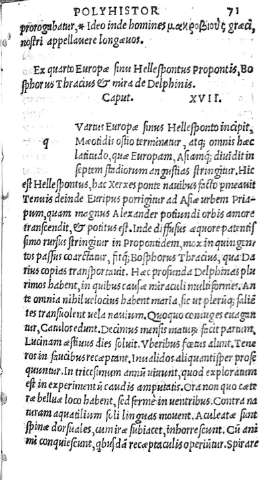 POLYHISTOR 71
prorogabatur,* Ideo inde homines μακροβιοὺς græci,
nostri appellavere longævos.
Ex quarto Europæ sinu Hellespontus Propontis, Bo
sphorus Thracius & mira de Delphinis.
Caput. XVII.
q Vartus Europæ sinus Hellesponto incipit,
Mæotidis ostio terminatur, atq; omnis hæc
latitudo, quæ Europam, Asiamq; dividit in
septem stadiorum angustias stringitur. Hic
est Hellespontus, hac Xerxes ponte navibus facto pmeavit
Tenuis deinde Euripus porrigitur ad Asiæ urbem Pria-
pum, quam magnus Alexander potiundi orbis amore
transcendit, & potitus est. Inde diffusus æquore patentis
simo rursus stringitur in Propontidem, mox in quingen
tos passus coarctatur, fitq; Bosphorus Thracius, qua Da
rius copias transportavit. Hæc profunda Delphinas plu
rimos habent, in quibus causæ miraculi multiformes. An
te omnia nihil velocius habent maria, sic ut plerūq; saliē
tes transvolent vela navium. Quoquo coniuges evagan
tur, Catulos edunt. Decimus mensis maturē facit partum,
Lucinam æstivus dies solvit. Vberibus fœtus alunt. Tene
ros in faucibus receptant. Invalidos aliquantisper prose
quuntur. In tricesimum annū vivunt, quod exploratum
est in experimentū caudis amputatis. Ora non quo cæte
ræ belluæ loco habent, sed fermè in ventribus. Contra na
turam aquatilium soli linguas movent. Aculeatæ sunt
spinæ dorsuales, cum iræ subiacet, inhorrescunt. Cū ani
mi conquiescunt, qbusdā receptaculis operiūtur. Spirare